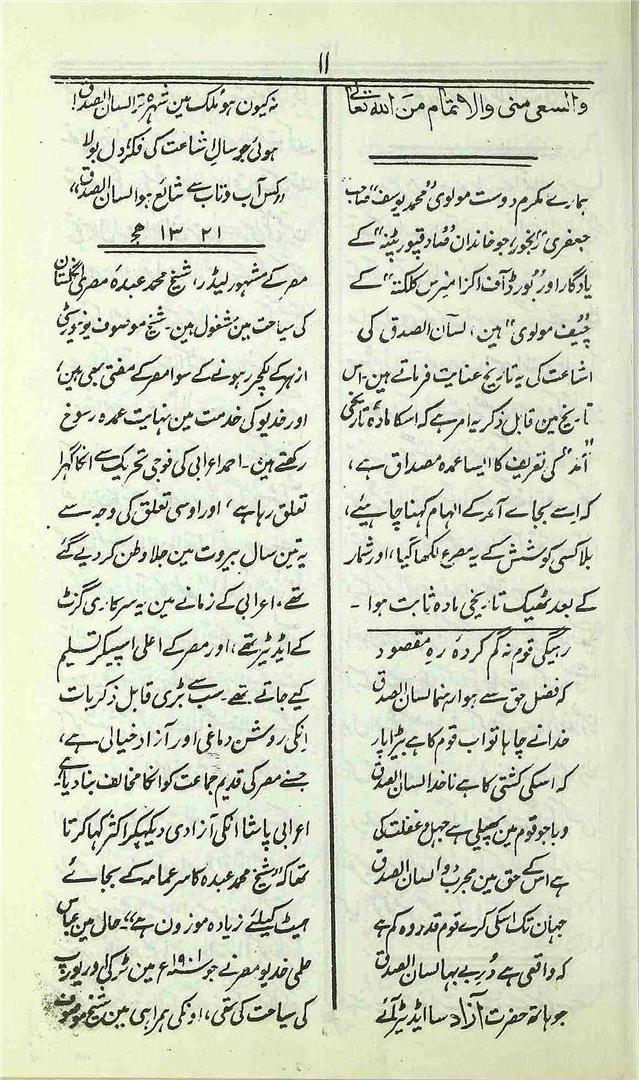 ۱۱
والسعی منی والاتمام من الله تعالیٰ
ہمارے مکرم دوست مولوی "محمد یوسف" صاحب
جعفری "رنجور"، جو خاندان "صادقپور پٹنہ" کے
یادگار اور "بورڈ آف اگزامنرس کلکتہ" کے
"چیف مولوی" ہین، لسان الصدق کی
اشاعت کی یہ تاریخ عنایت فرماتے ہین۔ اس
تاریخ مین قابل ذکر یہ امر ہے کہ اسکا مادۂ تاریخی
"آمد" کی تعریف کا ایسا عمدہ مصداق ہے،
کہ اسے بجاے آمد کے الہام کہنا چاہیئے،
بلا کسی کوشش کے یہ مصرع لکھا گیا، اور شمار
کے بعد ٹھیک تاریخی مادہ ثابت ہوا ۔
رہیگی قوم نہ گم کردہ رہِ مقصود
کہ فضل حق سے ہوا رہنما لسان الصدق
خدا نے چاہا تو اب قوم کا ہے بیڑا پار
کہ اسکی کشتی کا ہے ناخدا لسان الصدق
وبا جو قوم مین پھیلی ہے جہل و غفلت کی
ہے اس کے حق مین مجرب دوا لسان الصدق
جہان تک اسکی کرے قوم قدر وہ کم ہے
کہ واقعی ہے دُرِ بے بہا لسان الصدق
جو ہاتھ حضرت آزاد سا ایڈیٹر آئے
نہ کیون ہو مُلک مین شہرہ ترا لسان الصدق!
ہوئی جو سالِ اشاعت کی فکر، دل بولا
"کس آب و تاب سے شائع ہوا لسان الصدق"
۱۳۲۱ ھج
مصر کے مشہور لیڈر، شیخ محمد عبدہٗ مصری انگلستان
کی سیاحت مین مشغول ہین۔ شیخ موصوف یونیورسٹی
ازہر کے لکچرر ہونے کے سوا مصر کے مفتی بھی ہین،
اور خدیو کی خدمت مین نہایت عمدہ رسوخ
رکھتے ہین۔ احمد اعرابی کی فوجی تحریک سے انکا گہرا
تعلق رہا ہے، اور اوسی تعلق کی وجہ سے
یہ تین سال بیروت مین جلا وطن کر دیے گئے
تھے۔ اعرابی کے زمانے مین یہ سرکاری گزٹ
کے ایڈیٹر تھے، اور مصر کے اعلی اسپیکر تسلیم
کیے جاتے تھے۔ سب سے بڑی قابل ذکر بات
انکی روشن دماغی اور آزاد خیالی ہے،
جسنے مصر کی قدیم جماعت کو انکا مخالف بنا دیا ہے۔
اعرابی پاشا انکی آزادی دیکھکر اکثر کہا کرتا
تھا کہ "شیخ محمد عبدہ کا سر عمامہ کے بجائے
ہیٹ کیلئے زیادہ موزون ہے"۔ حال مین عباس
حلمی خدیو مصر نے جو سنہ ۱۹۰۱ء مین ٹرکی اور یورپ
کی سیاحت کی تھی، اونکی ہمراہی مین شیخ موصوف